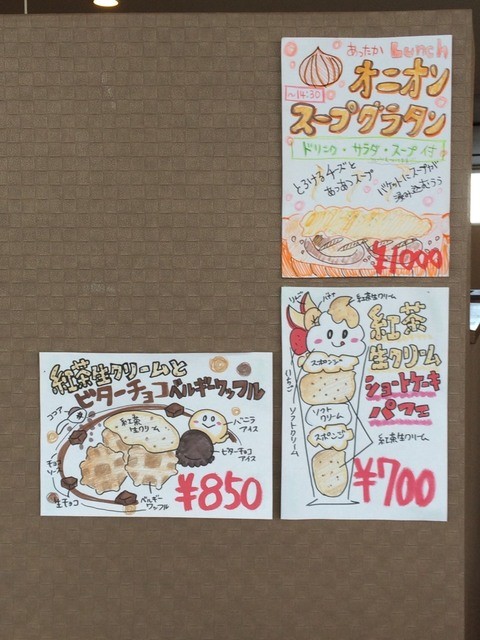 あったか Lunch
オニオン
～14:30
スープグラタン
ドリンク・サラダ・スープ付
とろけるチーズと
あつあつスープ
バケットにスープが
染み込むぅぅ
¥1000
りんご
バナナ
紅茶生クリーム
紅茶
生クリーム
ショートケーキ
パフェ
スポンジ
いちご
ソフト
クリーム
ソフトクリーム
スポンジ
紅茶生クリーム
¥700
紅茶生クリームと
ビターチョコベルギーワッフル
ココア
紅茶
生クリーム
バニラ
アイス
チョコ
ソース
ビターチョコ
アイス
生チョコ
ベルギー
ワッフル
¥850